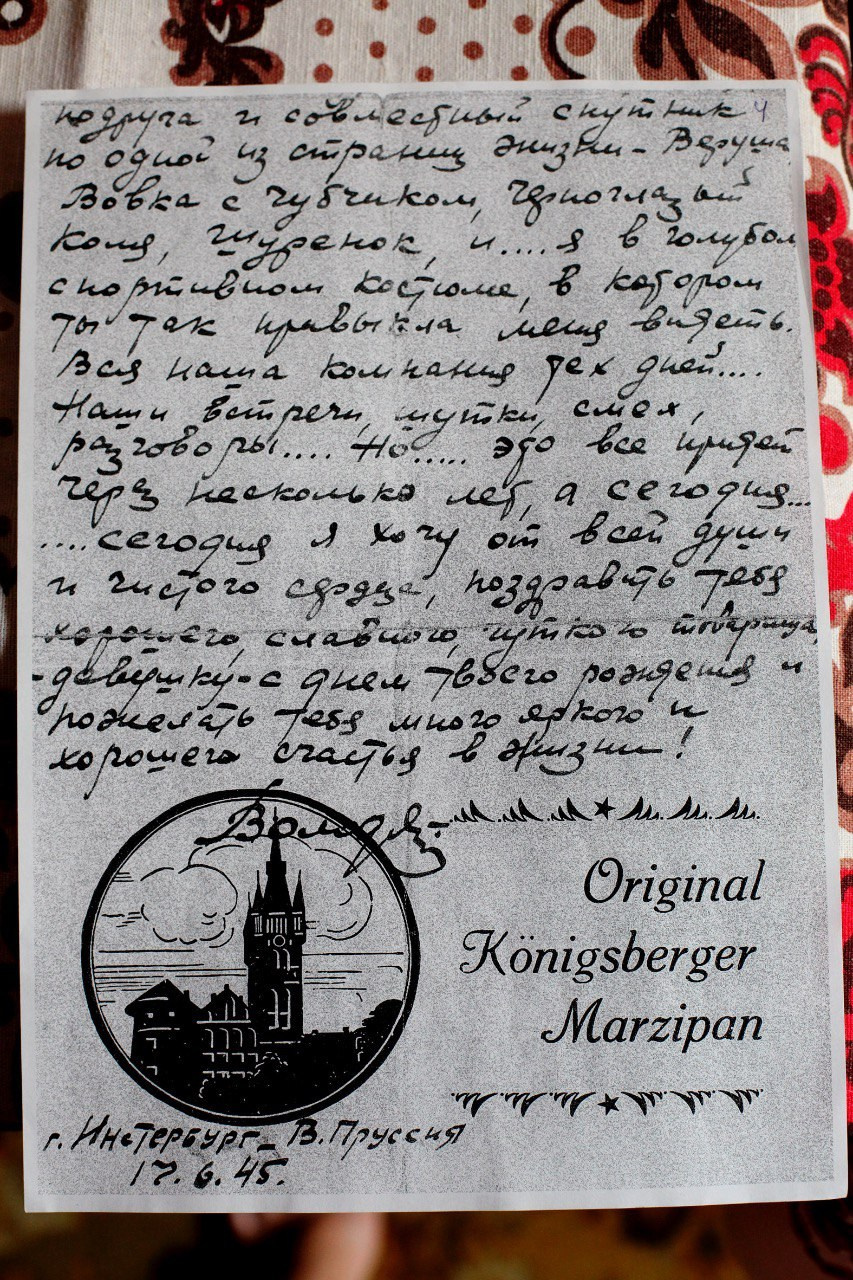 подруга и совместный спутник 4
по одной из страниц жизни – Веруша
Вовка с чубчиком, черноглазый
Коля, Шуренок, и....я в голубом
спортивном костюме, в котором
ты так привыкла меня видеть.
Вся наша компания тех дней....
Наши встречи, шутки, смех,
разговоры.... Но..... это все придет
через несколько лет, а сегодня...
....сегодня я хочу от всей души
и чистого сердца, поздравить тебя
хорошего, славного, чуткого товарища
-девушку- с днем твоего рождения и
пожелать тебе много яркого и
хорошего счастья в жизни!
Володя
Original
Königsberger
Marzipan
г. Инстербург – В. Пруссия
17.6.45.